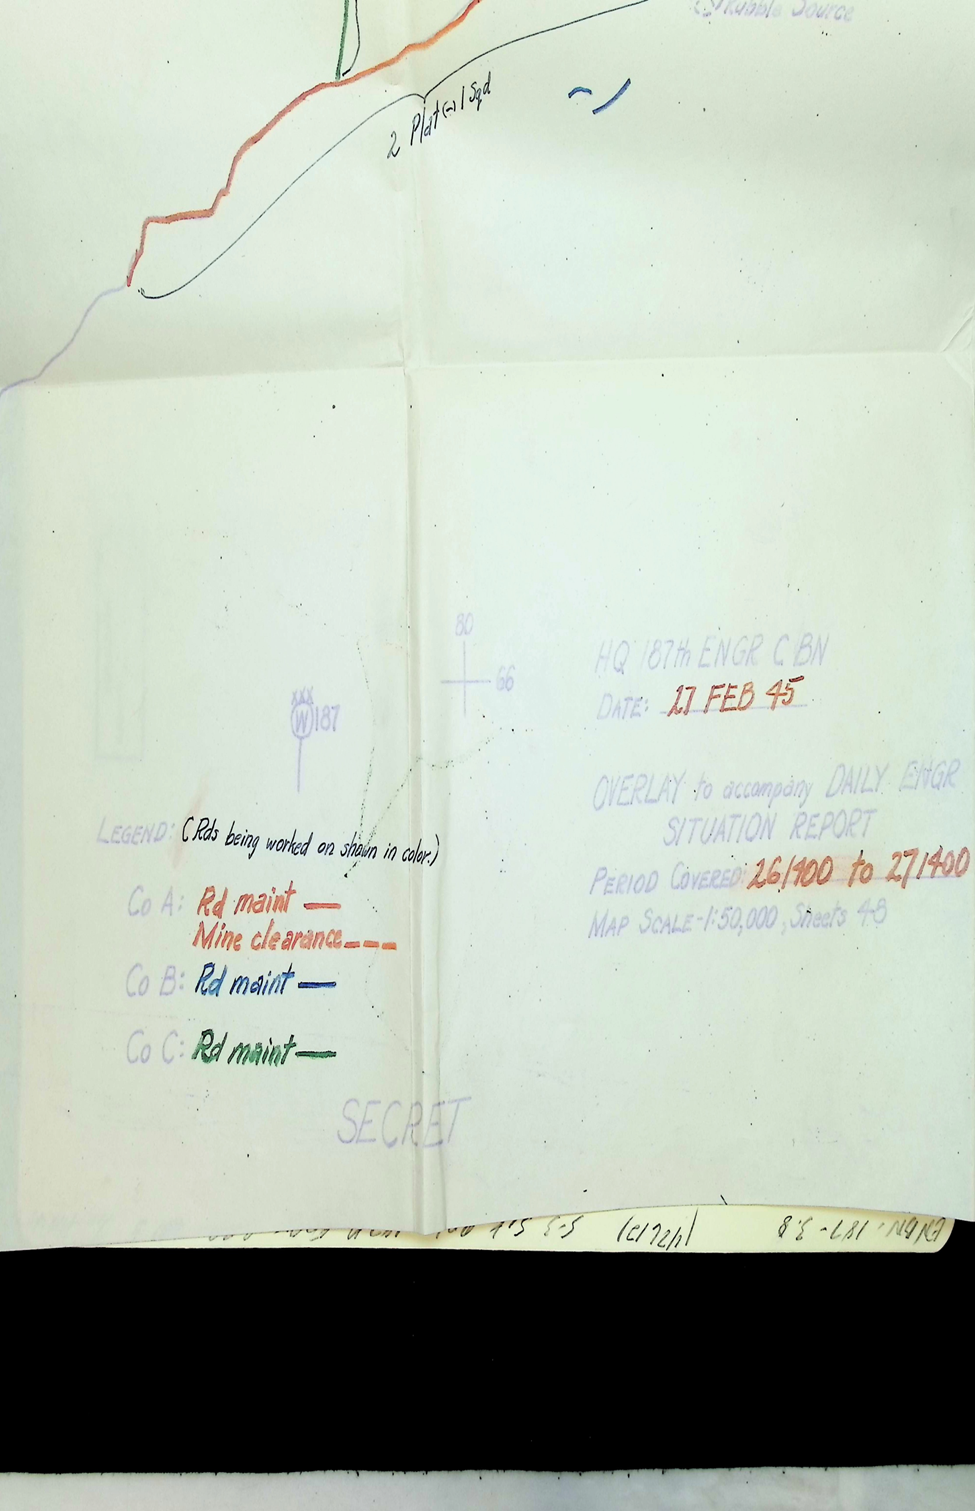 Rubble Source
2 Plat (-) 1 Sqd
80
66
HQ 187th ENGR C BN
DATE: 27 FEB 45
XXX
W 187
OVERLAY to accompany DAILY ENGR
SITUATION REPORT
PERIOD COVERED: 261400 to 271400
MAP SCALE-1:50,000, Sheets 48
LEGEND: (Rds being worked on shown in color.)
Co A: Rd maint —
Mine clearance ---
Co B: Rd maint —
Co C: Rd maint —
SECRET
ENBN-187-3.8